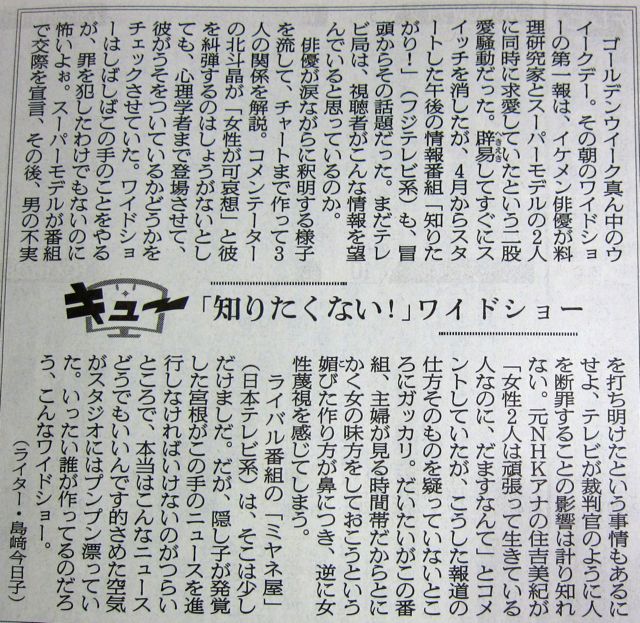 キュー
「知りたくない！」ワイドショー
ゴールデンウイーク真ん中のウ
イークデー。その朝のワイドショ
ーの第一報は、イケメン俳優が料
理研究家とスーパーモデルの2人
に同時に求愛していたという二股
愛騒動だった。辟易へきえきしてすぐにス
イッチを消したが、4月からスタ
ートした午後の情報番組「知りた
がり！」（フジテレビ系）も、冒
頭からその話題だった。まだテレ
ビ局は、視聴者がこんな情報を望
んでいると思っているのか。
俳優が涙ながらに釈明する様子
を流して、チャートまで作って3
人の関係を解説。コメンテーター
の北斗晶が「女性が可哀想」と彼
を糾弾するのはしょうがないとし
ても、心理学者まで登場させて、
彼がうそをついているかどうかを
チェックさせていた。ワイドショ
ーはしばしばこの手のことをやる
が、罪を犯したわけでもないのに
怖いよぉ。スーパーモデルが番組
で交際を宣言、その後、男の不実
を打ち明けたという事情もあるに
せよ、テレビが裁判官のように人
を断罪することの影響は計り知れ
ない。元NHKアナの住吉美紀が
「女性2人は頑張って生きている
人なのに、だますなんて」とコメ
ントしていたが、こうした報道の
仕方そのものを疑っていないとこ
ろにガッカリ。だいたいがこの番
組、主婦が見る時間帯だからとに
かく女の味方をしておこうという
媚こびた作り方が鼻につき、逆に女
性蔑視を感じてしまう。
ライバル番組の「ミヤネ屋」
（日本テレビ系）は、そこは少し
だけましだ。だが、隠し子が発覚
した宮根がこの手のニュースを進
行しなければいけないのがつらい
ところで、本当はこんなニュース
どうでもいいんです的さめた空気
がスタジオにはプンプン漂ってい
た。いったい誰が作ってるのだろ
う、こんなワイドショー。
（ライター・島﨑今日子）